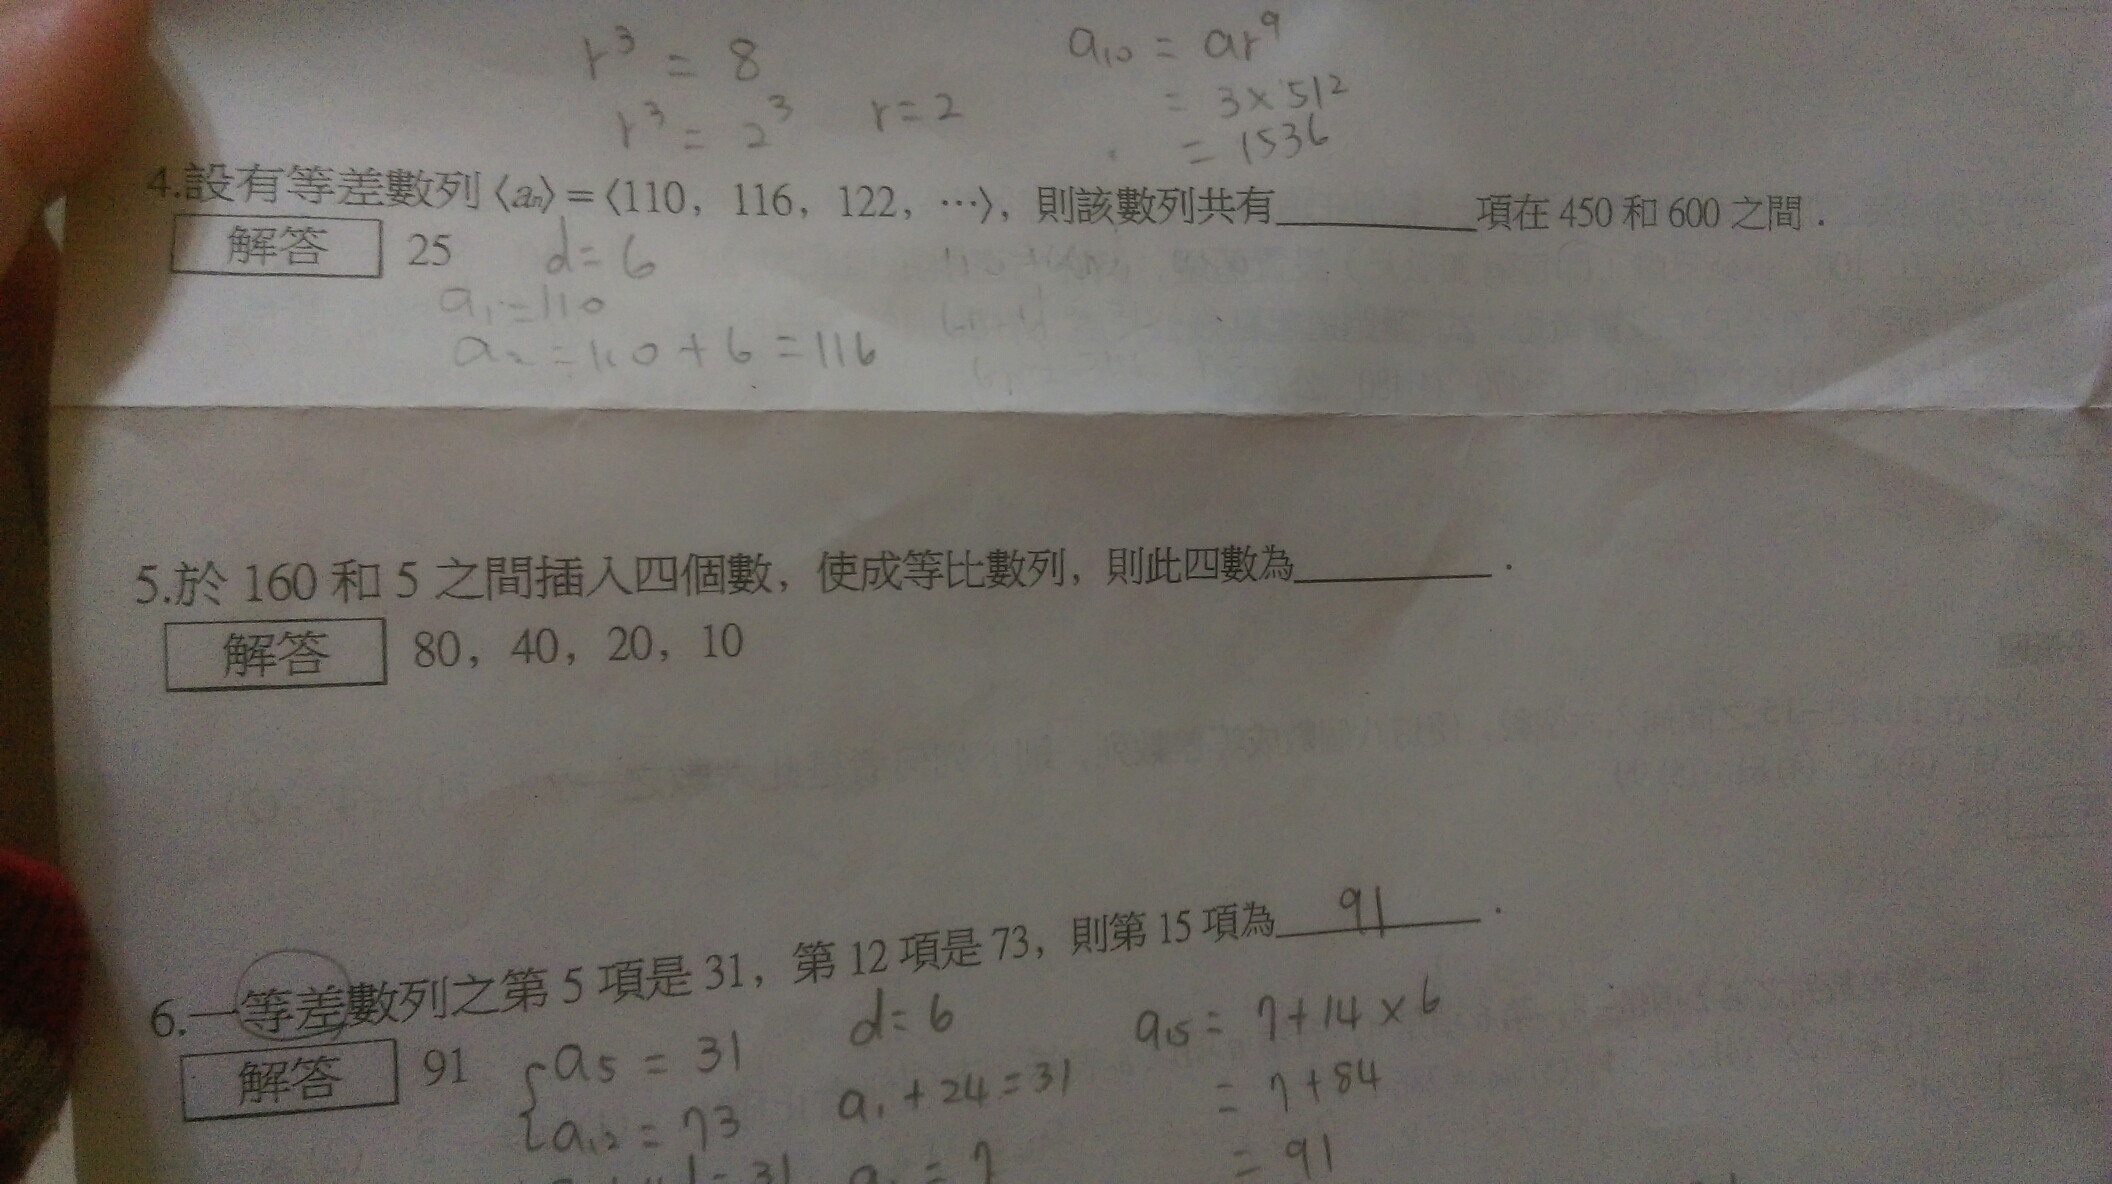 r³ = 8
a₁₀ = ar⁹
r³ = 2³ r=2
= 3×512
= 1536
4.設有等差數列⟨aₙ⟩=⟨110，116，122，⋯⟩，則該數列共有________項在 450 和 600 之間．
解答 25 d=6
a₁=110
a₂=110+6=116
5.於 160 和 5 之間插入四個數，使成等比數列，則此四數為________．
解答 80，40，20，10
6.一等差數列之第 5 項是 31，第 12 項是 73，則第 15 項為 91．
解答 91
a₅ = 31
a₁₂ = 73
d=6
a₁+24=31
a₁=7
a₁₅ = 7+14×6
= 7+84
= 91